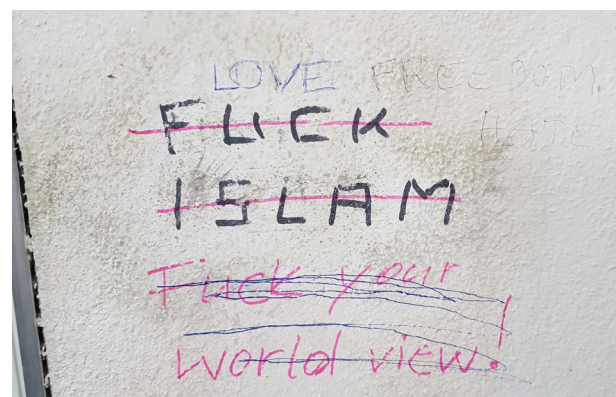 LOVE FREEDOM
FUCK
HATE
ISLAM
Fuck your
World view!